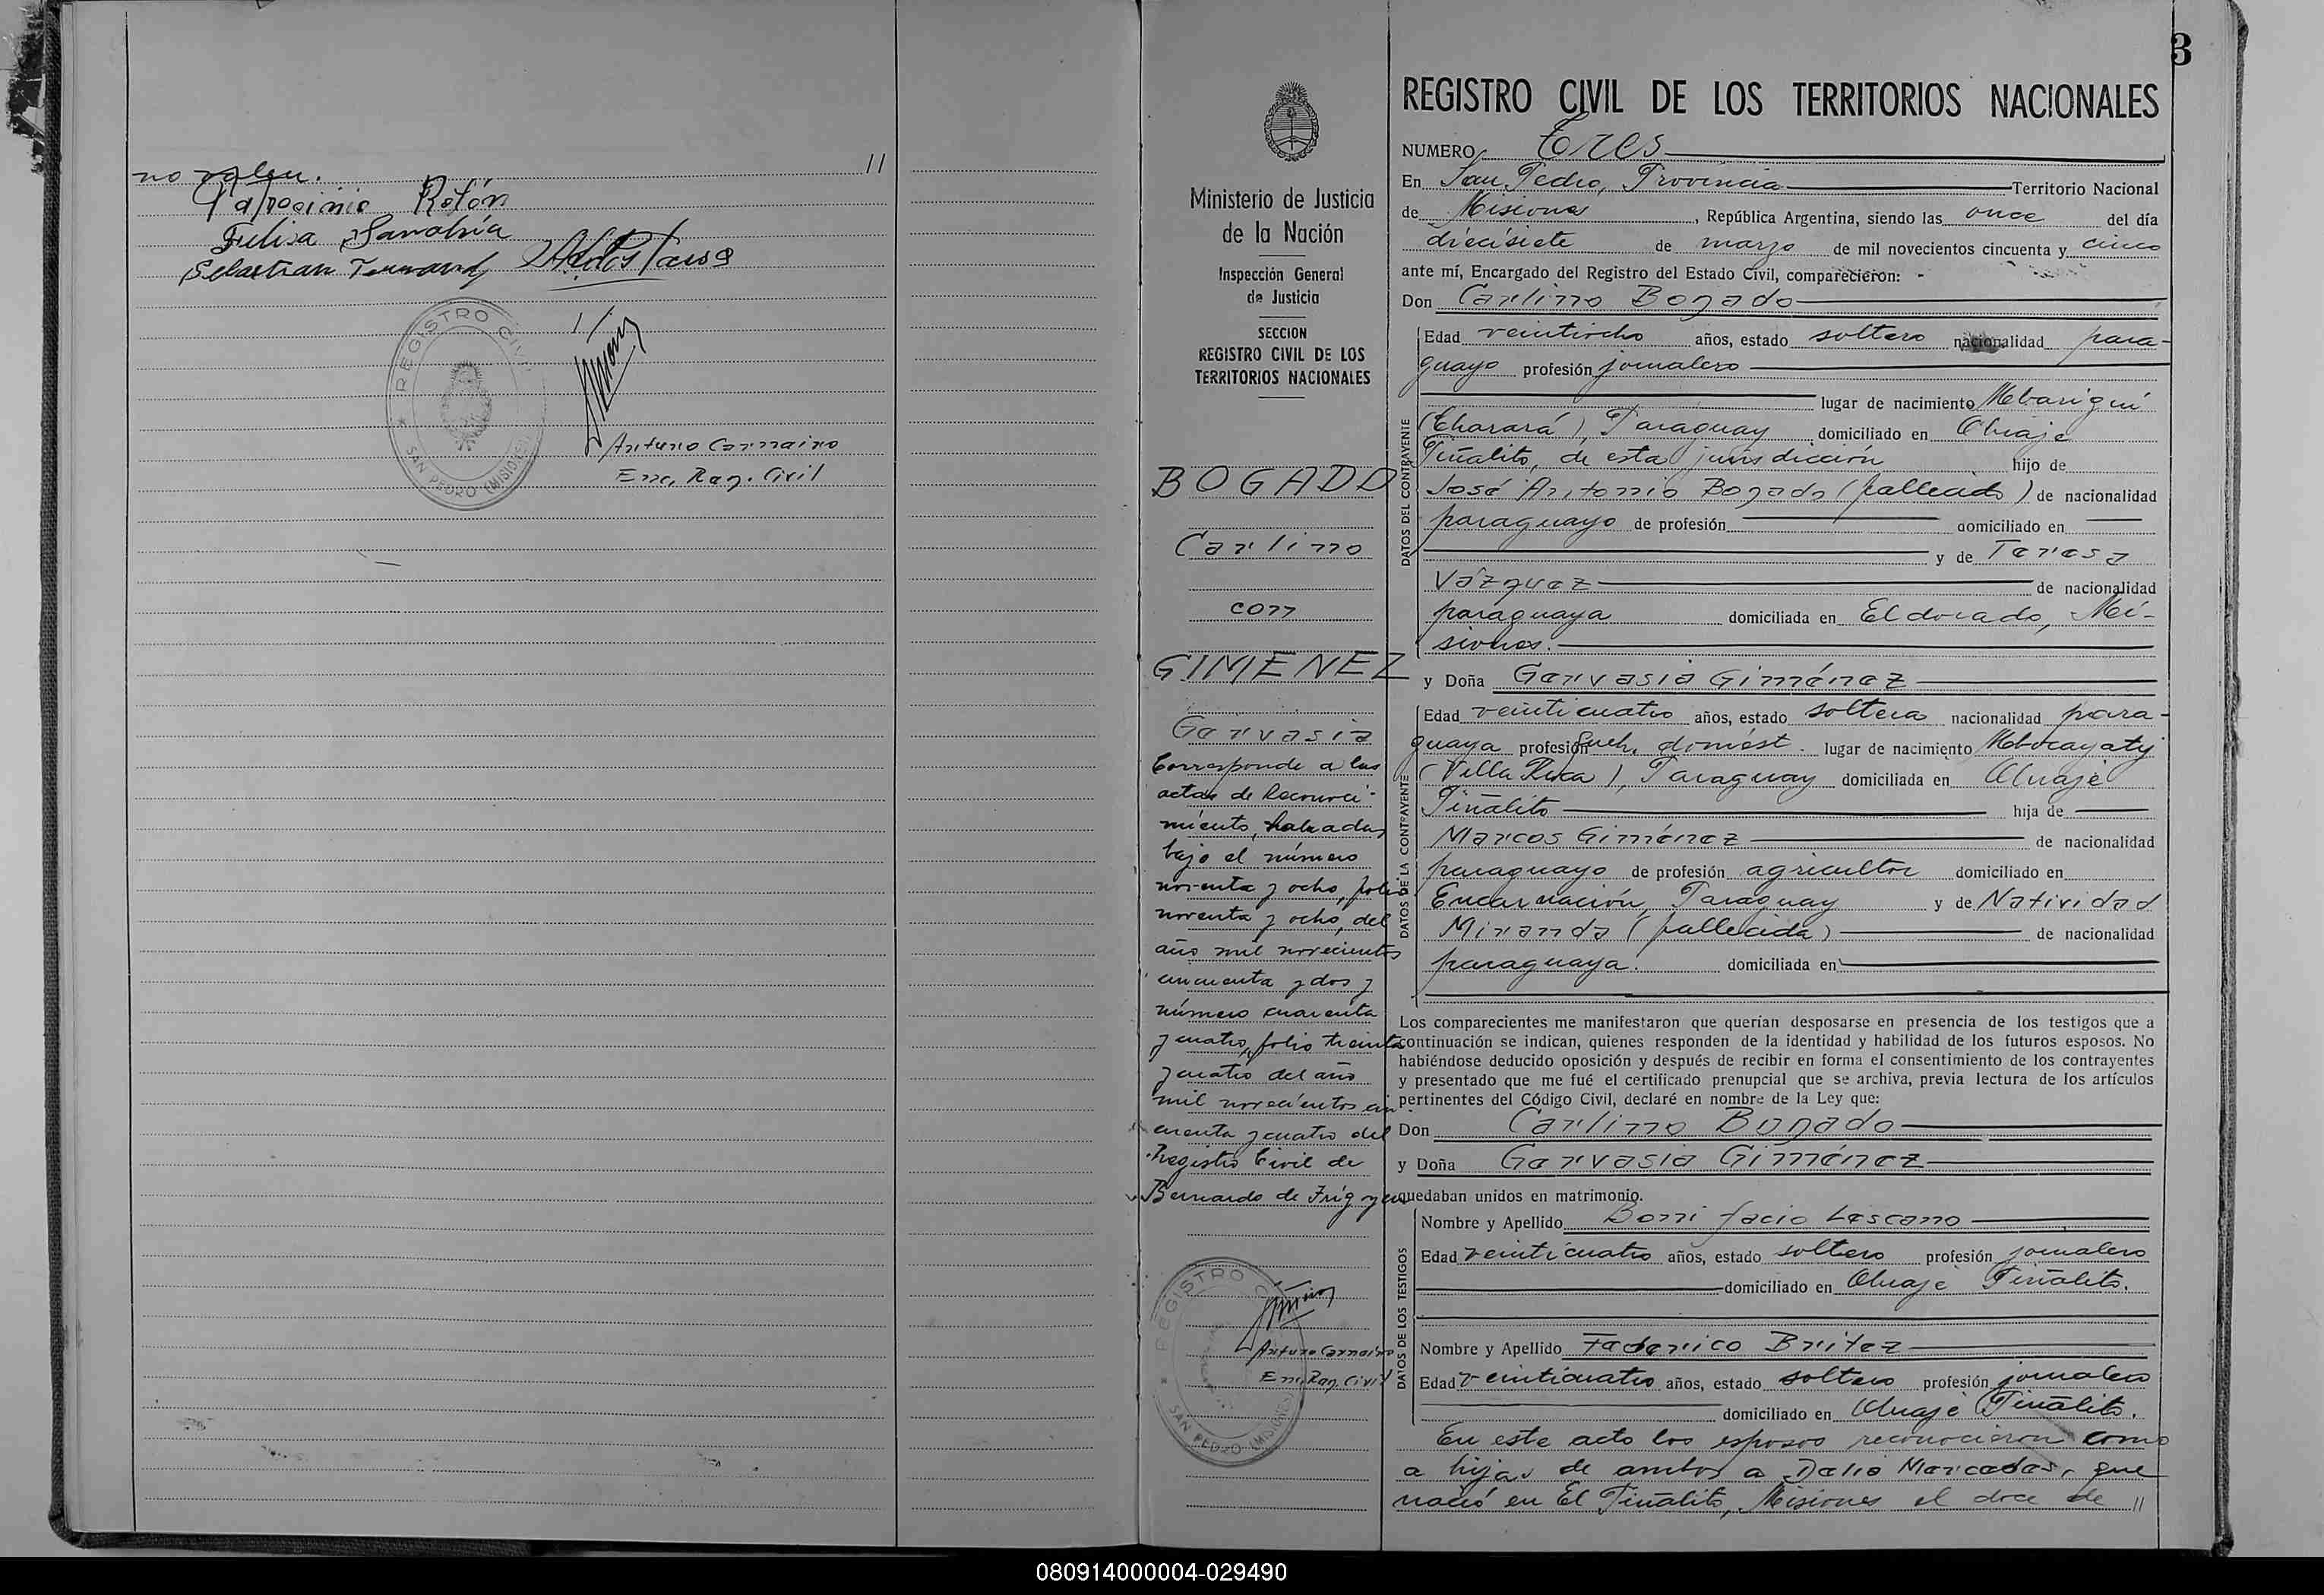 no valen.
Patrocinio Rolón
Felisa Sanabria
Sebastian
REGISTRO CIVIL
SAN PEDRO (MISIONES)
Arturo Carnairo
Enc. Reg. Civil
3
Ministerio de Justicia
de la Nación
Inspección General
de Justicia
SECCION
REGISTRO CIVIL DE LOS
TERRITORIOS NACIONALES
BOGADO
Carlino
con
GIMENEZ
Gervasia
Corresponde a las
actas de Reconoci-
miento, labradas
bajo el número
noventa y ocho, folio
noventa y ocho, del
año mil novecientos
cincuenta y dos y
número cuarenta
y cuatro, folio treinta
y cuatro del año
mil novecientos cin
cuenta y cuatro del
Registro Civil de
Bernardo de Irigoyen
REGISTRO C
SAN PEDRO (MISIONES)
Arturo Carnairo
Enc. Reg. Civil
REGISTRO CIVIL DE LOS TERRITORIOS NACIONALES
NUMERO Tres
En San Pedro, Provincia Territorio Nacional
de Misiones, República Argentina, siendo las once del día
diecisiete de marzo de mil novecientos cincuenta y cinco
ante mí, Encargado del Registro del Estado Civil, comparecieron:
Don Carlino Bogado
DATOS DEL CONTRAYENTE
Edad veintiocho años, estado soltero nacionalidad para-
guayo profesión jornalero
lugar de nacimiento Mbariguí
(Charará), Paraguay domiciliado en Obraje
Piñalito, de esta jurisdicción hijo de
José Antonio Bogado (fallecido) de nacionalidad
paraguayo de profesión domiciliado en
y de Teresa
Vázquez de nacionalidad
paraguaya domiciliada en Eldorado, Mi-
siones.
y Doña Gervasia Giménez
DATOS DE LA CONTRAYENTE
Edad veinticuatro años, estado soltera nacionalidad para-
guaya profesión queh. domést. lugar de nacimiento Mbocayaty
(Villa Rica), Paraguay domiciliada en Obraje
Piñalito hija de
Marcos Giménez de nacionalidad
paraguayo de profesión agricultor domiciliado en
Encarnación, Paraguay y de Natividad
Miranda (fallecida) de nacionalidad
paraguaya. domiciliada en
Los comparecientes me manifestaron que querían desposarse en presencia de los testigos que a
continuación se indican, quienes responden de la identidad y habilidad de los futuros esposos. No
habiéndose deducido oposición y después de recibir en forma el consentimiento de los contrayentes
y presentado que me fué el certificado prenupcial que se archiva, previa lectura de los artículos
pertinentes del Código Civil, declaré en nombre de la Ley que:
Don Carlino Bogado
y Doña Gervasia Giménez
quedaban unidos en matrimonio.
DATOS DE LOS TESTIGOS
Nombre y Apellido Bonifacio Lescano
Edad veinticuatro años, estado soltero profesión jornalero
domiciliado en Obraje Piñalito.
Nombre y Apellido Federico Britez
Edad veinticuatro años, estado soltero profesión jornalero
domiciliado en Obraje Piñalito.
En este acto los esposos reconocieron como
a hijas de ambos a Delia Mercedes, que
nació en El Piñalito, Misiones el doce de //
080914000004-029490